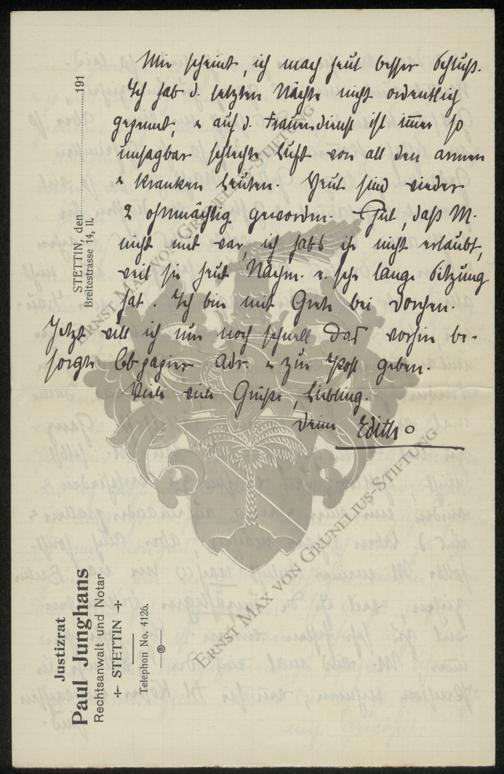 Mir scheint, ich mach heut besser Schluß.
Ich hab d. letzten Nächte nicht ordentlich
gepennt, u auf d. Frauendienst ist immer so
unsagbar schlechte Luft von all den armen
u kranken Leuten. Heut sind wieder
2 ohnmächtig geworden. Gut, daß M.
nicht mit war, ich habs ihr nicht erlaubt,
weil sie heut Nachm. e. sehr lange Sitzung
hat. Ich bin mit Grete bei Dorchen.
Jetzt will ich nur noch schnell das vorhin be-
sorgte Cb-papier Adr. u zur Post geben.
Viele viele Grüße, Liebling.
Deine Edith
STETTIN, den 191
Breitestrasse 14, II.
Justizrat
Paul Junghans
Rechtsanwalt und Notar
STETTIN
Telephon No. 4126.
ERNST MAX VON GRUNELIUS-STIFTUNG
ERNST MAX VON GRUNELIUS-STIFTUNG